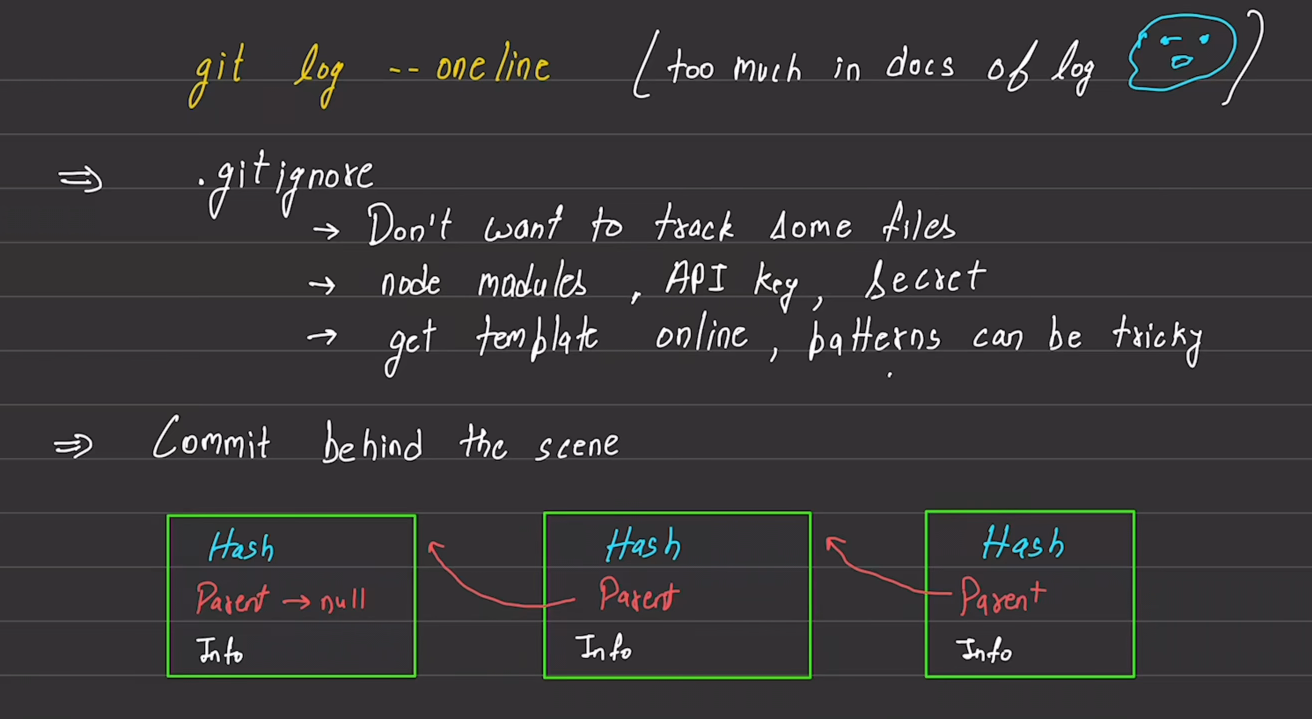 git log -- oneline (too much in docs of log )
⇒ .gitignore
→ Don't want to track some files
→ node modules, API key, secret
→ get template online, patterns can be tricky
⇒ Commit behind the scene
Hash
Parent → null
Info
Hash
Parent
Info
Hash
Parent
Info